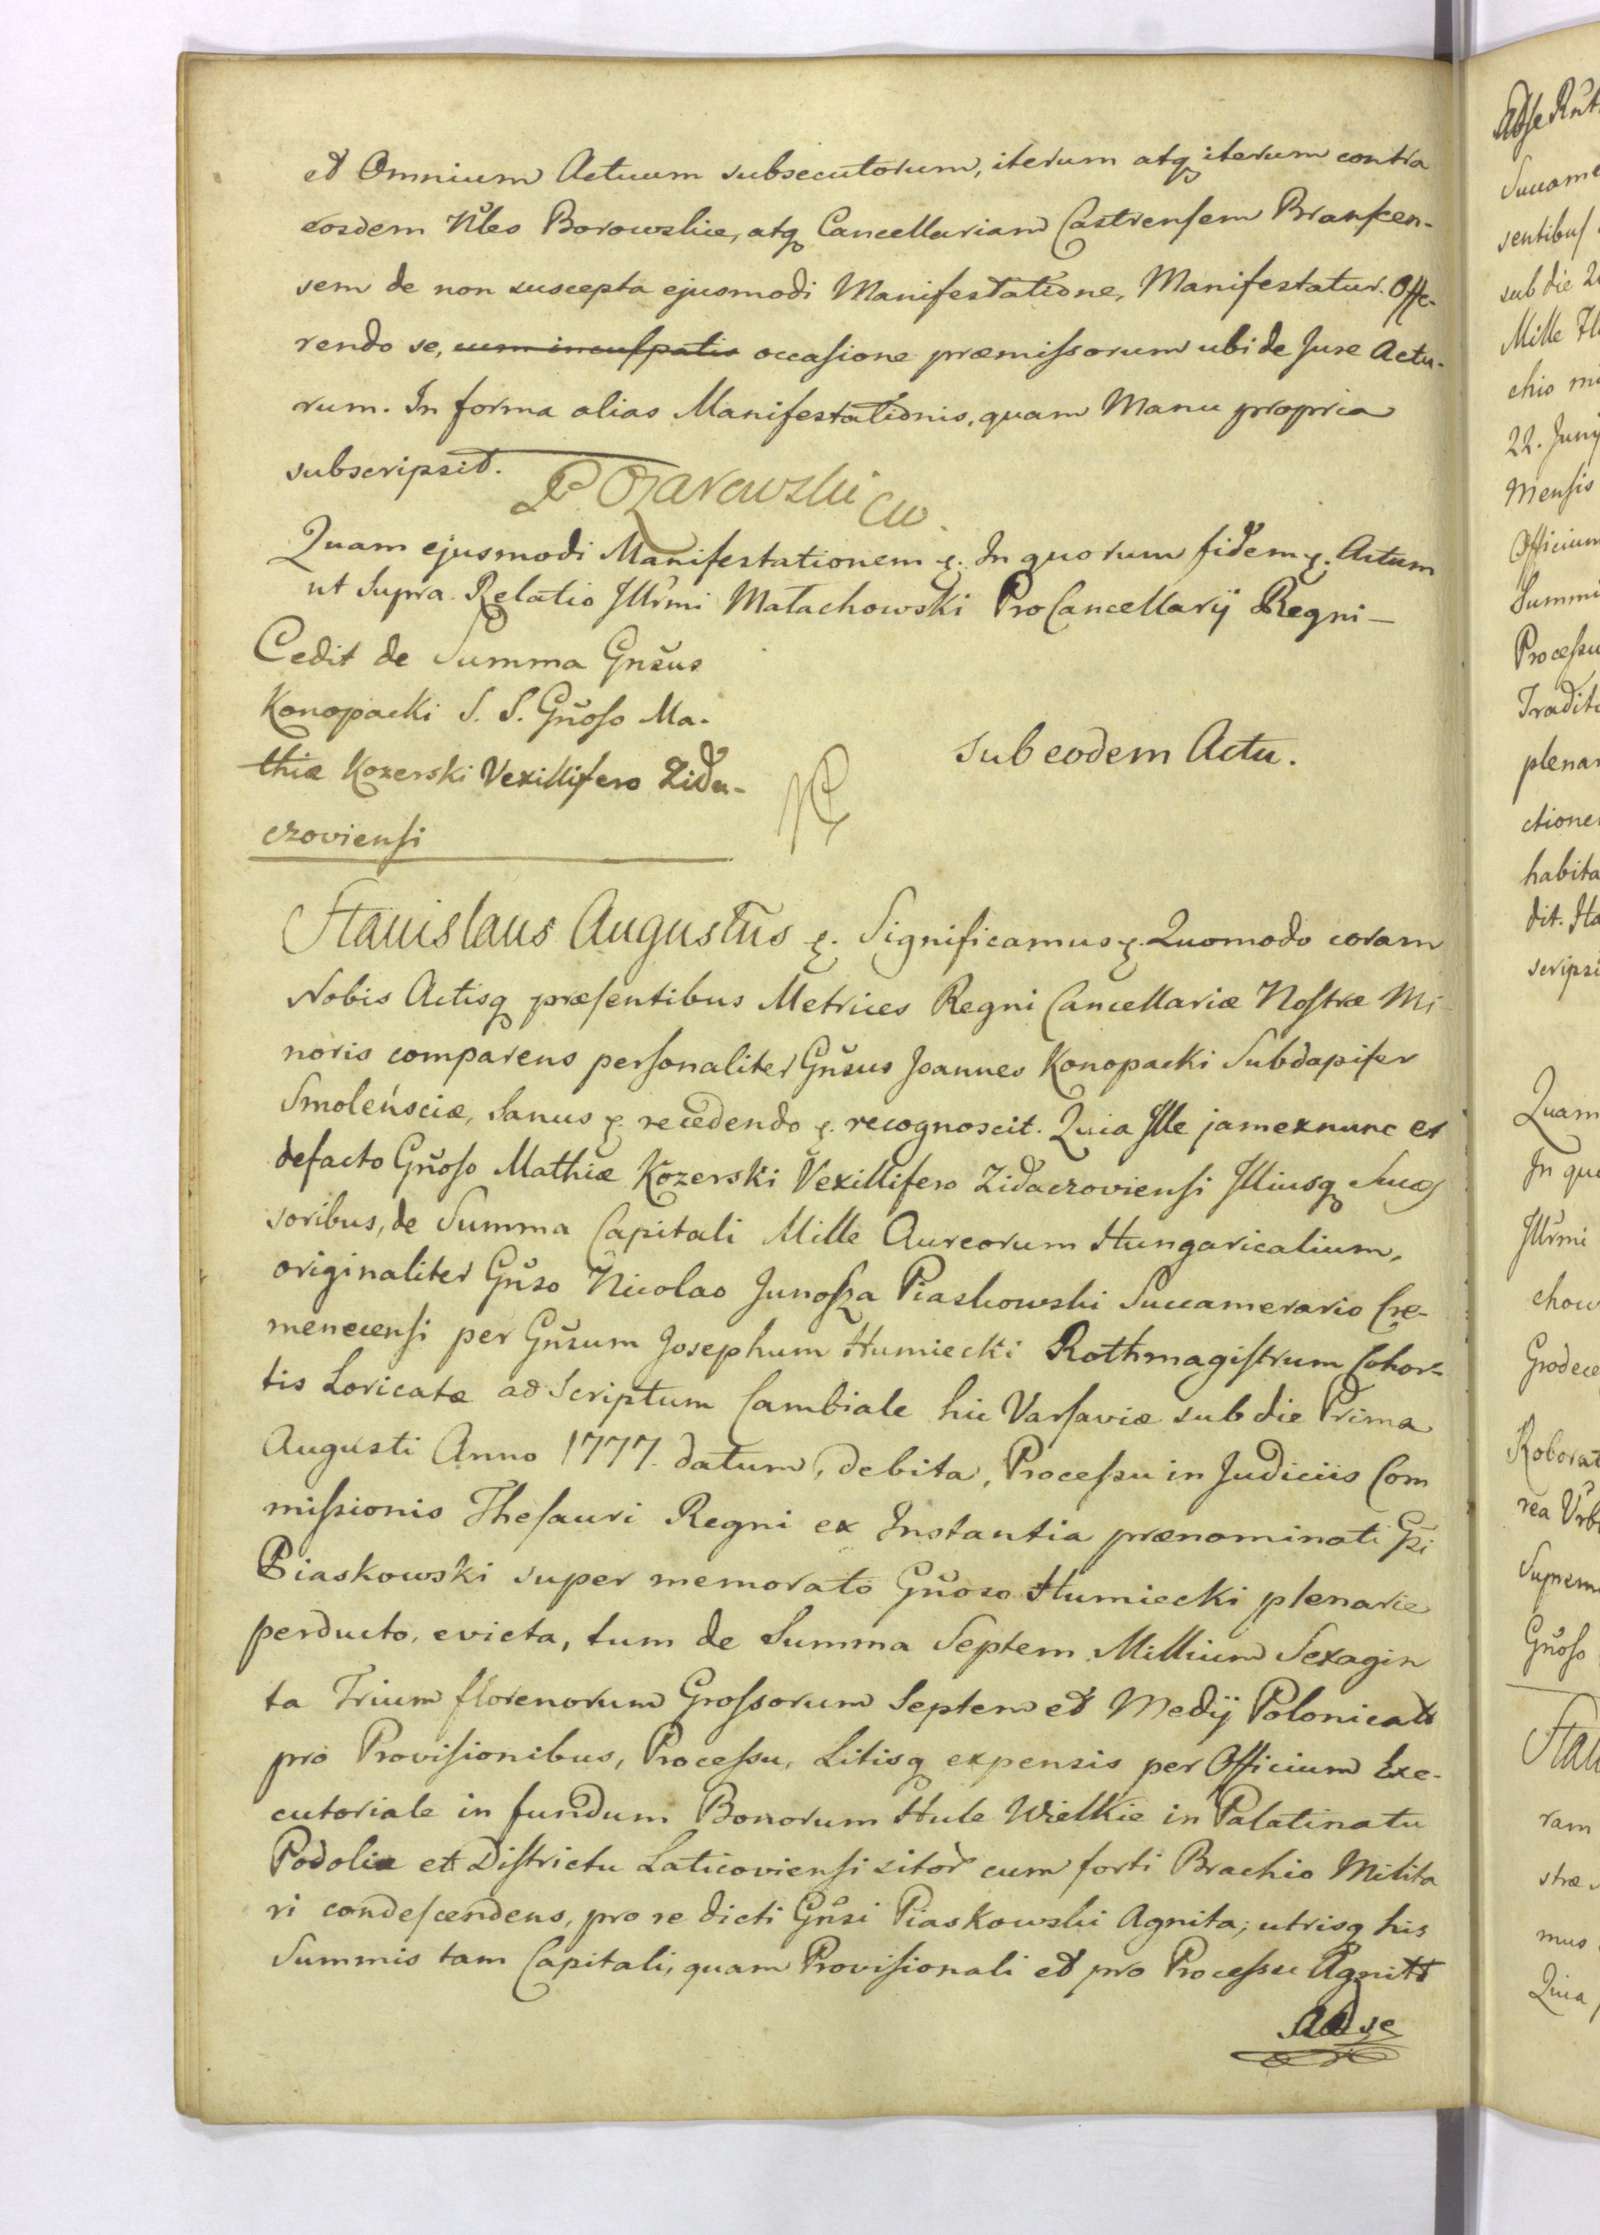 et Omnium Actuum subsecutorum, iterum atq iterum contra
eosdem Nbles Borowskie, atq Cancellariam Castrensem Bransken-
sem de non suscepta ejusmodi Manifestatione, Manifestatur. Offe-
rendo se, cum inculpatis occasione præmissorum ubi de Jure Actu-
rum. In forma alias Manifestationis, quam Manu propria
subscripsit.
Quam ejusmodi Manifestationem &. In quorum fidem &. Actum
ut Supra. Relatio Jllrmi Małachowski ProCancellarij Regni –
Cedit de Summa Gnsus
Konopacki S. S. Gnoso Ma-
thiæ Kozerski Vexillifero Zida-
czoviensi
sub eodem Actu.
Stanislaus Augustus &. Significamus &. Quomodo coram
Nobis Actisq præsentibus Metrices Regni Cancellariæ Nostræ Mi-
noris comparens personaliter Gnsus Joannes Konopacki Subdapifer
Smoleńsciæ, Sanus &. recedendo &. recognoscit. Quia Jlle jam exnunc et
defacto Gnoso Mathiæ Kozerski Vexillifero Zidaczoviensi Jlliusq
soribus, de Summa Capitali Mille Aureorum Hungaricalium,
originaliter Gnso Nicolao Junosza Piaskowski Succamerario Cre-
menecensi per Gnsum Josephum Humiecki Rothmagistrum Cohor-
tis Loricatæ ad Scriptum Cambiale hic Varsaviæ sub die Prima
Augusti Anno 1777. datum, debita, Processu in Judiciis Com
missionis Thesauri Regni ex Instantia prænominati Gsi
Piaskowski super memorato Gnoso Humiecki plenarie
perducto, evicta, tum de Summa Septem Millium Sexagin
ta Trium florenorum Grossorum Septem et Medij Polonical
pro Provisionibus, Processu, Litisq expensis per Officium Exe-
cutoriale in fundum Bonorum Hule Wielkie in Palatinatu
Podoliæ et Districtu Laticoviensi sitor cum forti Brachio Milita
ri condescendens, pro re dicti Gnsi Piaskowski Agnita; utrisq his
Summis tam Capitali, quam Provisionali et pro Processu Agnitis
Ad se